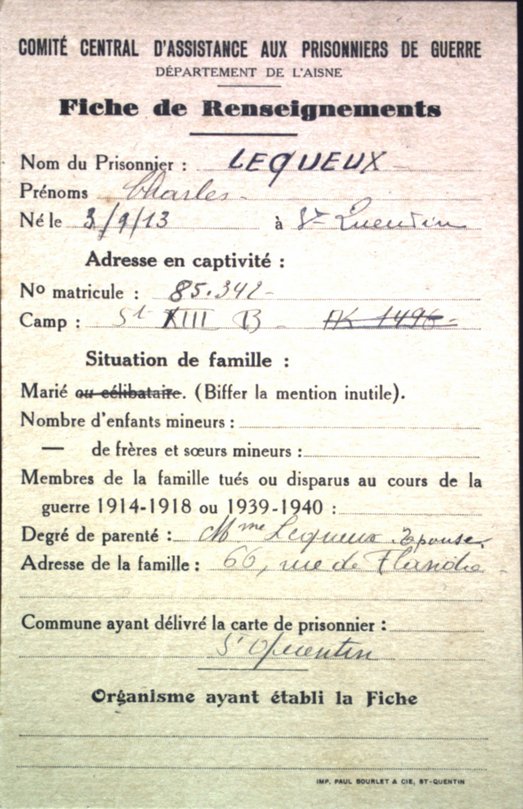 COMITÉ CENTRAL D'ASSISTANCE AUX PRISONNIERS DE GUERRE
DÉPARTEMENT DE L'AISNE
Fiche de Renseignements
Nom du Prisonnier : LEQUEUX
Prénoms Charles
Né le 3/9/13 à St Quentin
Adresse en captivité :
No matricule : 85.342
Camp : St XIII B AK 1496
Situation de famille :
Marié ou célibataire. (Biffer la mention inutile).
Nombre d'enfants mineurs :
— de frères et sœurs mineurs :
Membres de la famille tués ou disparus au cours de la
guerre 1914-1918 ou 1939-1940 :
Degré de parenté : Mme Lequeux Epouse
Adresse de la famille : 66, rue de Flandre
Commune ayant délivré la carte de prisonnier :
St Quentin
Organisme ayant établi la Fiche
IMP. PAUL BOURLET & CIE, ST-QUENTIN